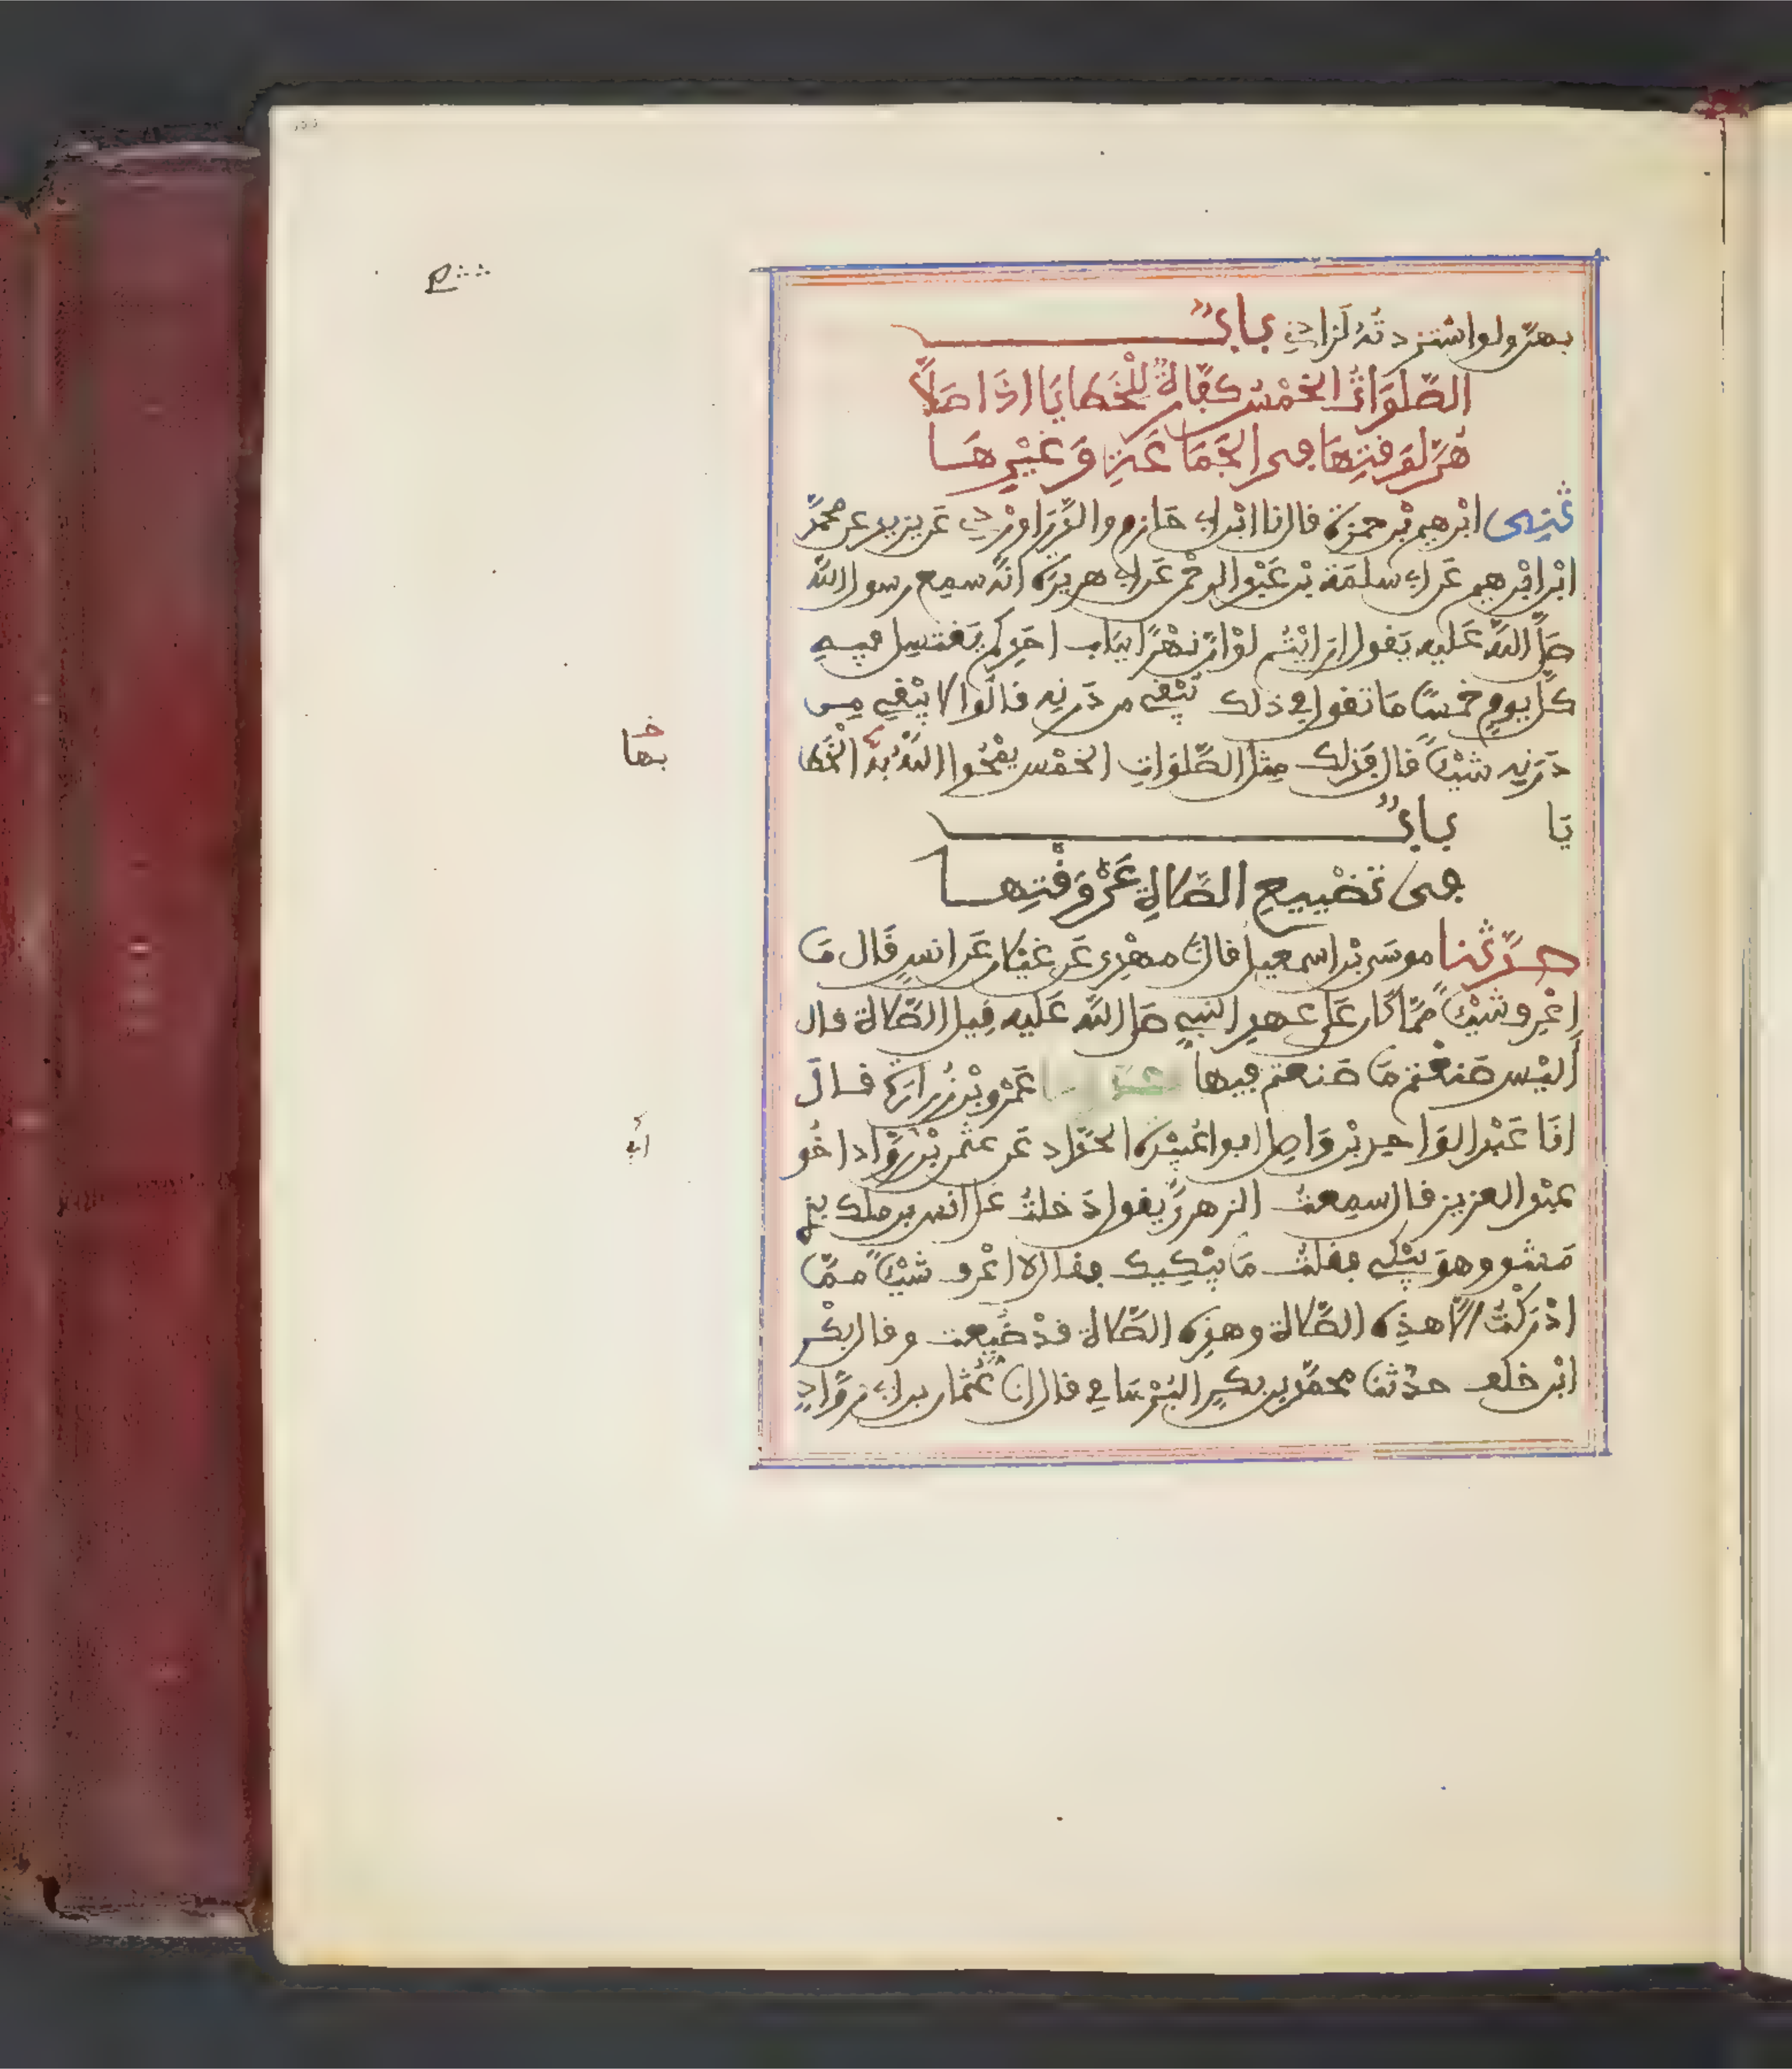 بهن ولو استزدته لزادني باب
الصلوات الخمس كفارة للخطايا اذا صلا
هن لوقتها في الجماعة وغيرها
ثني ابرهيم بن حمزة قال انا ابن ابي حازم والدراوردي عن يزيد عن محمد
ابن ابرهيم عن ابي سلمة بن عبد الرحمن عن ابي هريرة انه سمع رسول الله
صلى الله عليه يقول ارايتم لو ان نهرا بباب احدكم يغتسل فيه
كل يوم خمسا ما تقول في ذلك يبقي من درنه قالوا لا يبقي من
درنه شيئا قال فذلك مثل الصلوات الخمس يمحوا الله به الخطا
يا باب
في تضييع الصلاة عن وقتها
حدثنا موسى بن اسمعيل قال نا مهدي عن غيلان عن انس قال ما
اعرف شيئا مما كان على عهد النبي صلى الله عليه قيل الصلاة قال
اليس صنعتم ما صنعتم فيها عمرو بن زرارة قال
انا عبد الواحد بن واصل ابو عبيدة الحداد عن عثمن بن رواد اخو
عبد العزيز قال سمعت الزهري يقول دخلت على انس بن ملك بد
مشق وهو يبكي فقلت ما يبكيك فقال لا اعرف شيئا مما
ادركت الا هذه الصلاة وهذه الصلاة قد ضيعت وقال بكر
ابن خلف حدثنا محمد بن بكر البرساني قال انا عثمان بن ابي رواد
بها
ابي